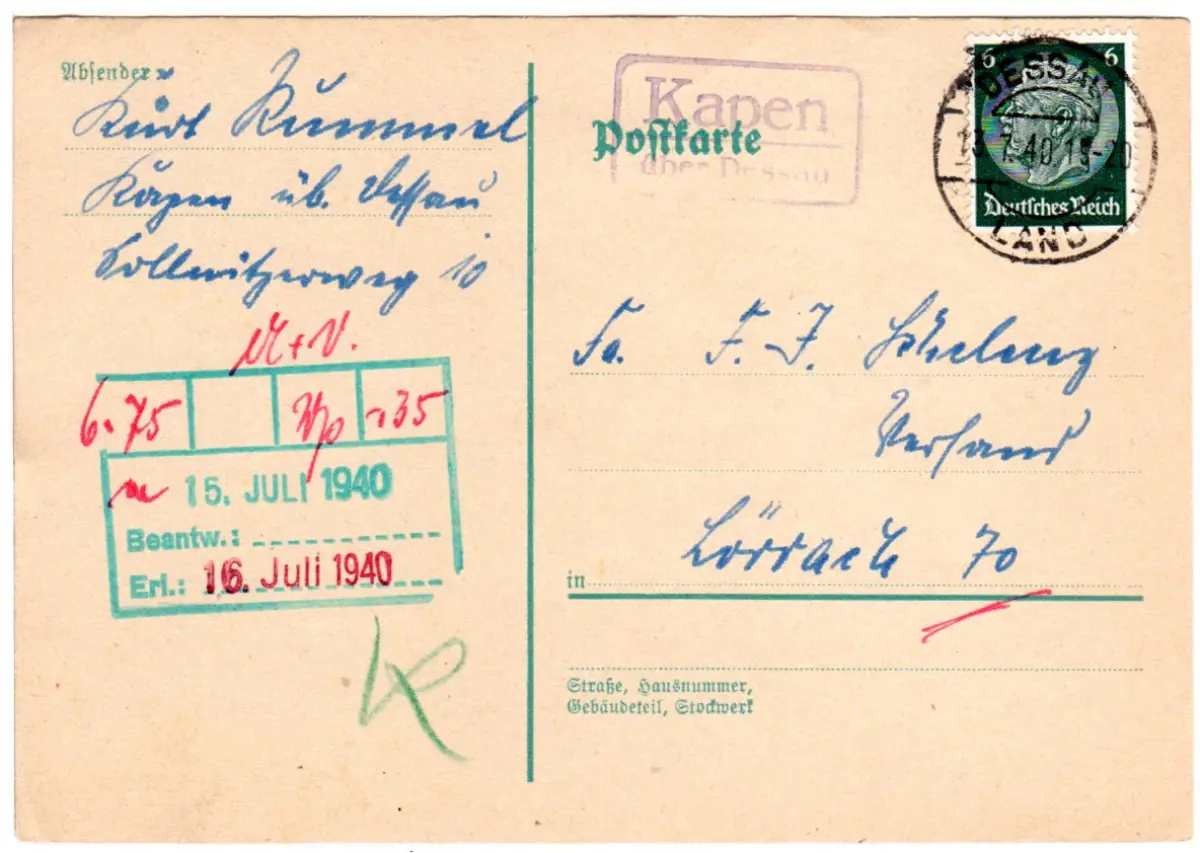 Absender:
Kurt Rummel
Kapen üb. Dessau
Kollwitzerweg 10
M+V.
6.75
-35
15. JULI 1940
Beantw.:
Erl.: 16. Juli 1940
Kapen
über Dessau
Postkarte
6 6
Deutsches Reich
DESSAU
13.7.40 19-20
LAND
Fa. F.-J.
Versand
in Lörrach 70
Straße, Hausnummer,
Gebäudeteil, Stockwerk